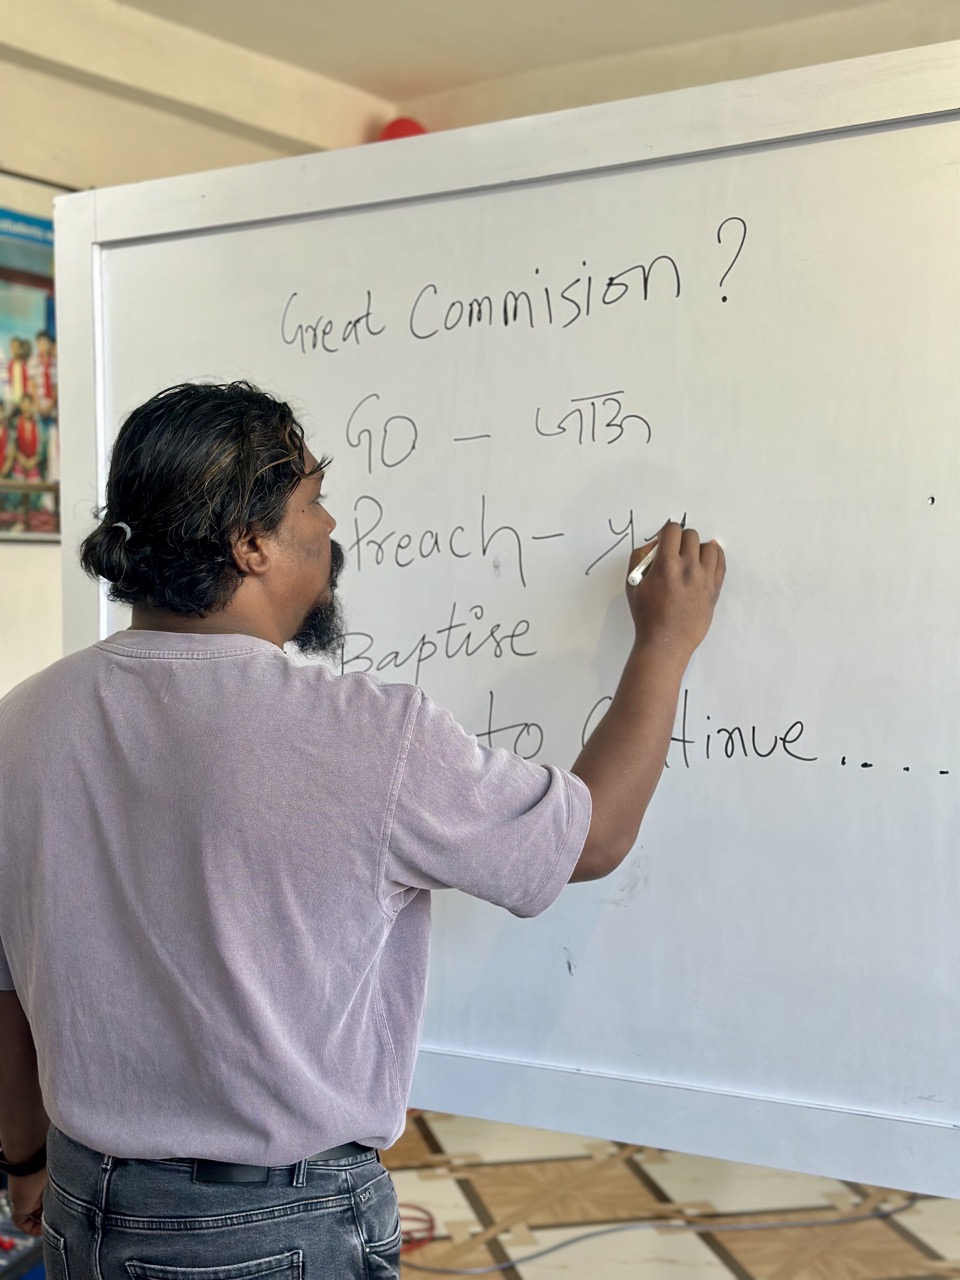 Great Commision ?
GO - जाऊ
Preach -
Baptise
to Continue....